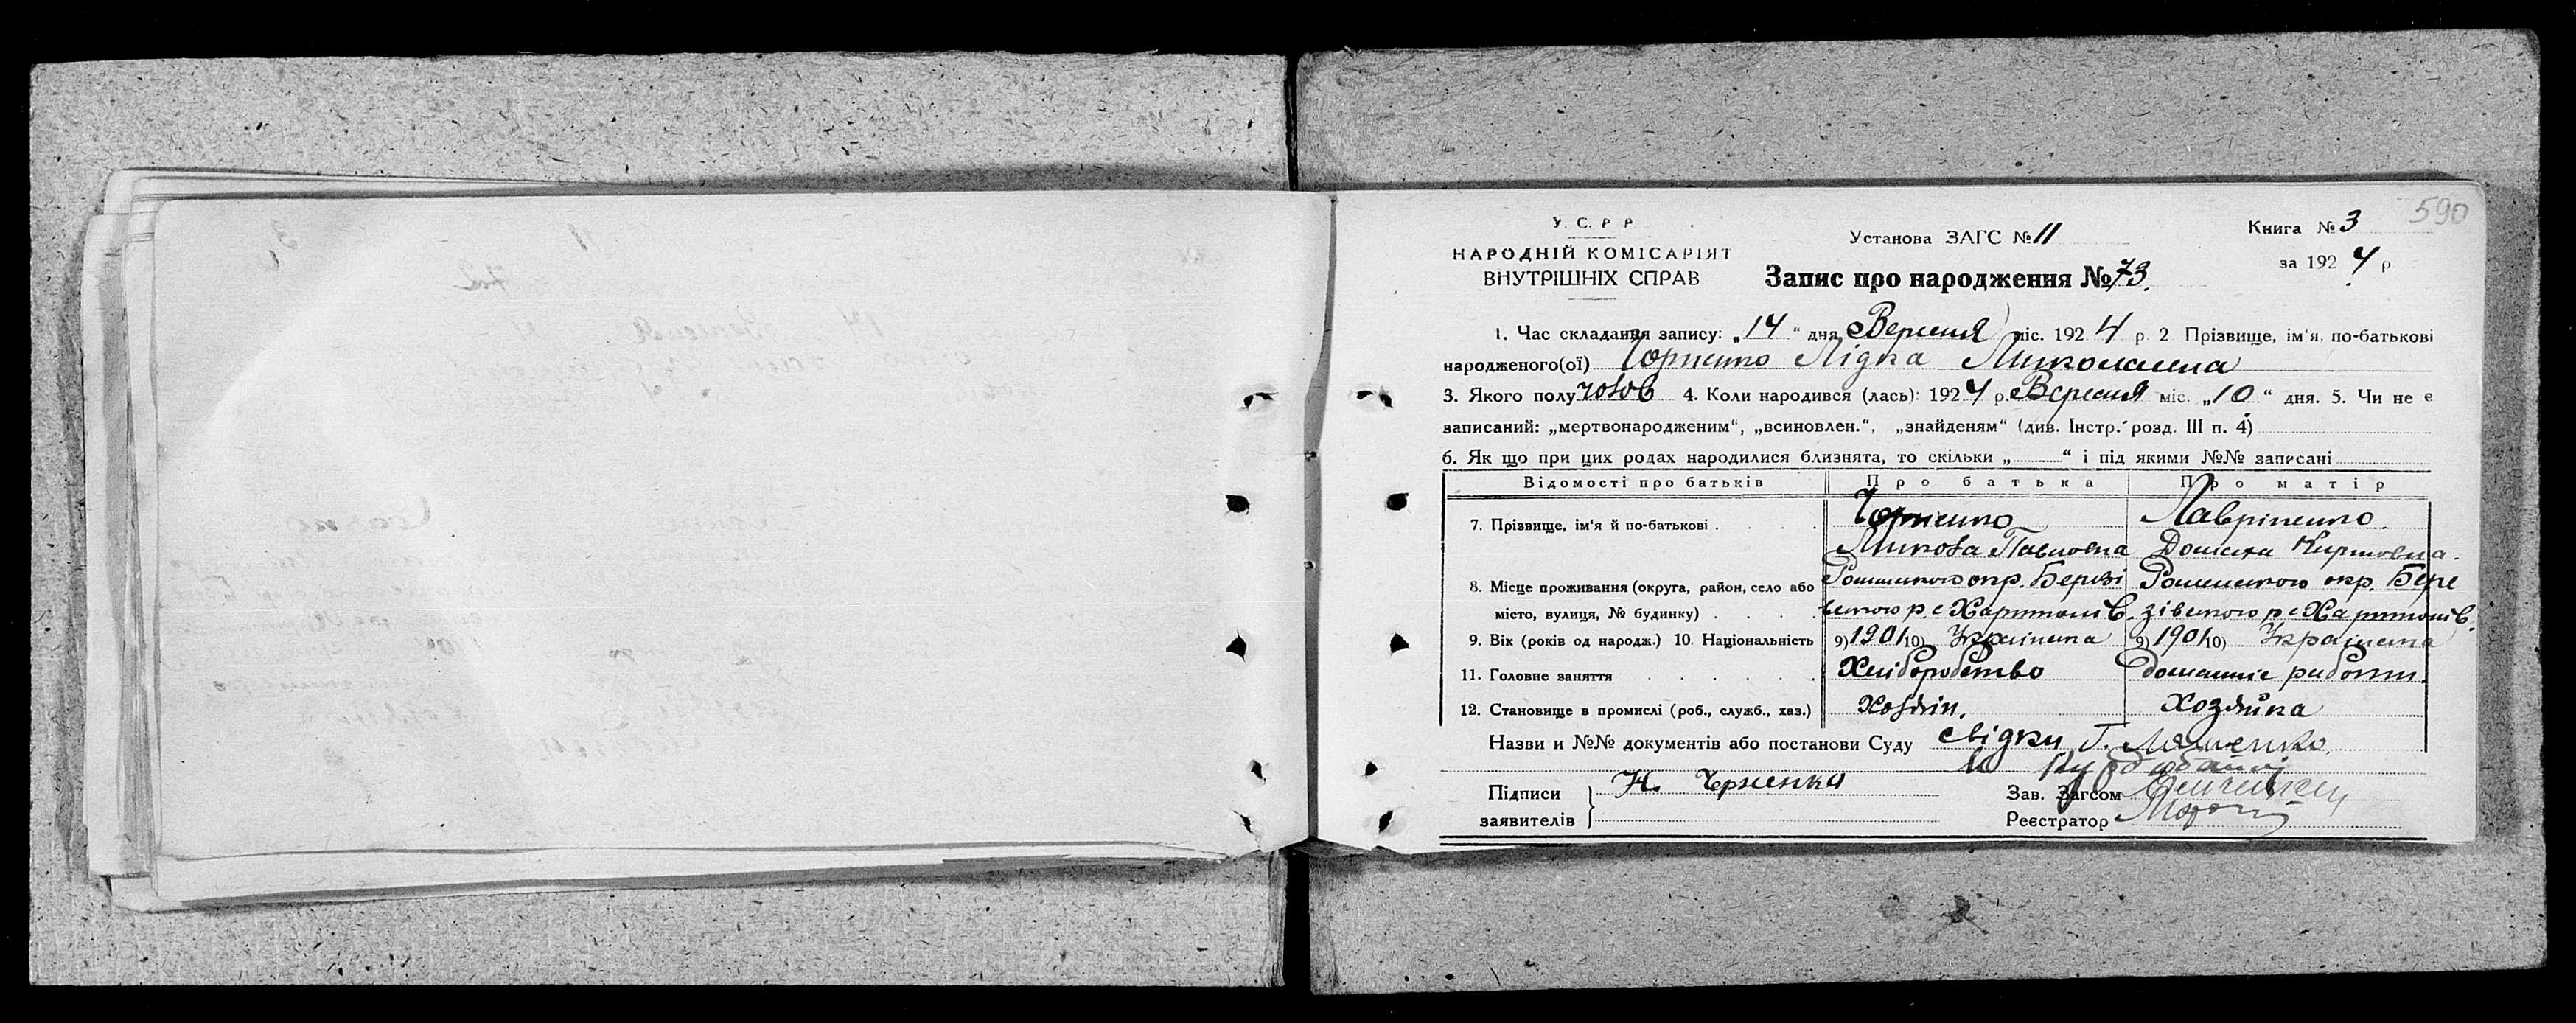 590
У. С. Р Р
НАРОДНІЙ КОМІСАРІЯТ
ВНУТРІШНІХ СПРАВ
Установа ЗАГС № 11
Книга № 3
за 1924 р
Запис про народження № 73.
1. Час складання запису: „14“ дня Вересня міс. 1924 р. 2 Прізвище, ім'я, по-батькові
народженого(ої) Миколаевна
3. Якого полу чолов 4. Коли народився (лась): 1924 р. Вересня міс. „10“ дня. 5. Чи не є
записаний: „мертвонародженим“, „всиновлен.“, „знайденям“ (див. Інстр. розд. III п. 4)
6. Як що при цих родах народилися близнята, то скільки „ “ і під якими №№ записані
Відомості про батьків Про батька Про матір
7. Прізвище, ім'я й по-батькові . . . . Лавріненко.
Микола Павловна
8. Місце проживання (округа, район, село або Роменського окр. Берізі Роменского окр. Бере
місто, вулиця, № будинку) . . . . ського р с Хартионів. зівського р с Хартионів.
9. Вік (років од народж.) 10. Національність 9) 1901 10) Українска 9) 1901 10) Українска
11. Головне заняття . . . . . . Хліборобство домашнє работи.
12. Становище в промислі (роб., служб., хаз.) Хозяін. Хозяйка
Назви и №№ документів або постанови Суду свідки Г. Ляшенко
Підписи
заявителів
Н. Черненка
Зав. Загсом
Реєстратор